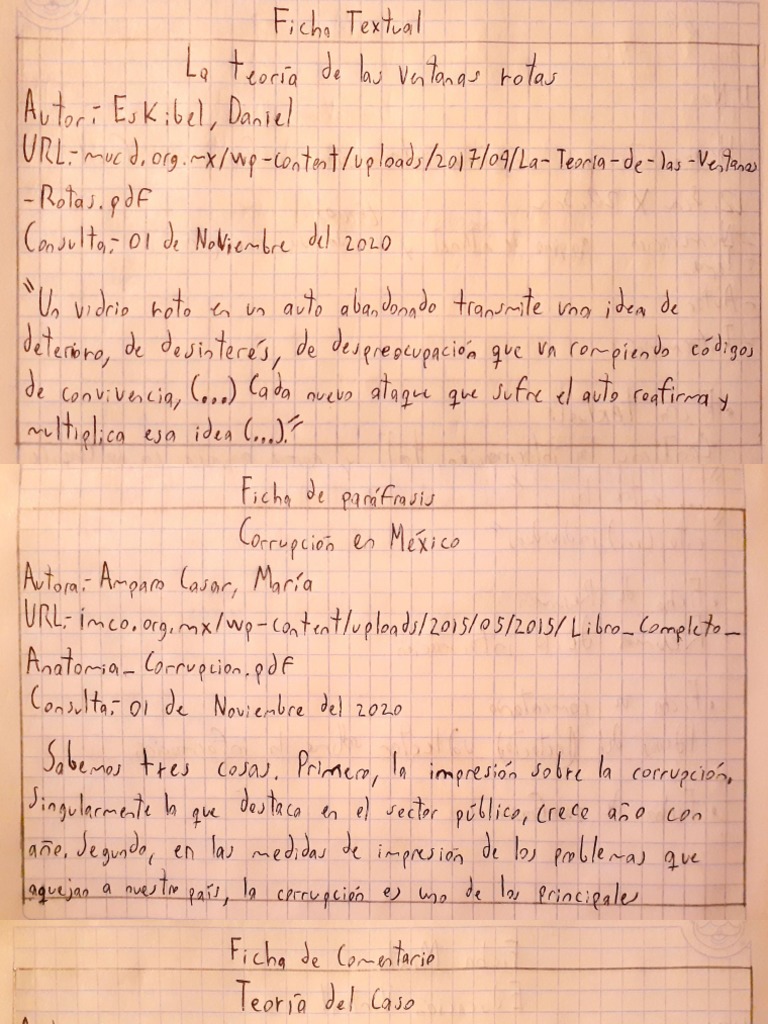 Ficha Textual
La teoría de las ventanas rotas
Autor:- Eskibel, Daniel
URL:- mucd.org.mx/wp-content/uploads/2017/09/La-Teoria-de-las-Ventanas
-Rotas.pdf
Consulta:- 01 de Noviembre del 2020
"Un vidrio roto en un auto abandonado transmite una idea de
deterioro, de desinterés, de despreocupación que va rompiendo códigos
de convivencia, (...) Cada nuevo ataque que sufre el auto reafirma y
multiplica esa idea (...)."
Ficha de paráfrasis
Corrupción en México
Autora:- Amparo Casar, María
URL:- imco.org.mx/wp-content/uploads/2015/05/2015/Libro_Completo_
Anatomia_Corrupcion.pdf
Consulta:- 01 de Noviembre del 2020
Sabemos tres cosas. Primero, la impresión sobre la corrupción,
singularmente la que destaca en el sector público, crece año con
año. Segundo, en las medidas de impresión de los problemas que
aquejan a nuestro país, la corrupción es uno de los principales
Ficha de Comentario
Teoría del Caso